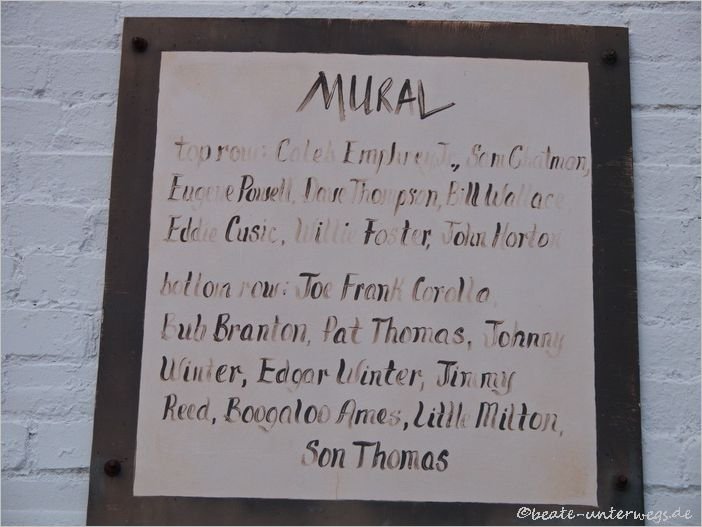 MURAL
top row: Caleb Emphrey Jr., Sam Chatman,
Eugene Powell, Dave Thompson, Bill Wallace,
Eddie Cusic, Willie Foster, John Horton
bottom row: Joe Frank Corollo,
Bub Branton, Pat Thomas, Johnny
Winter, Edgar Winter, Jimmy
Reed, Boogaloo Ames, Little Milton,
Son Thomas
©beate-unterwegs.de